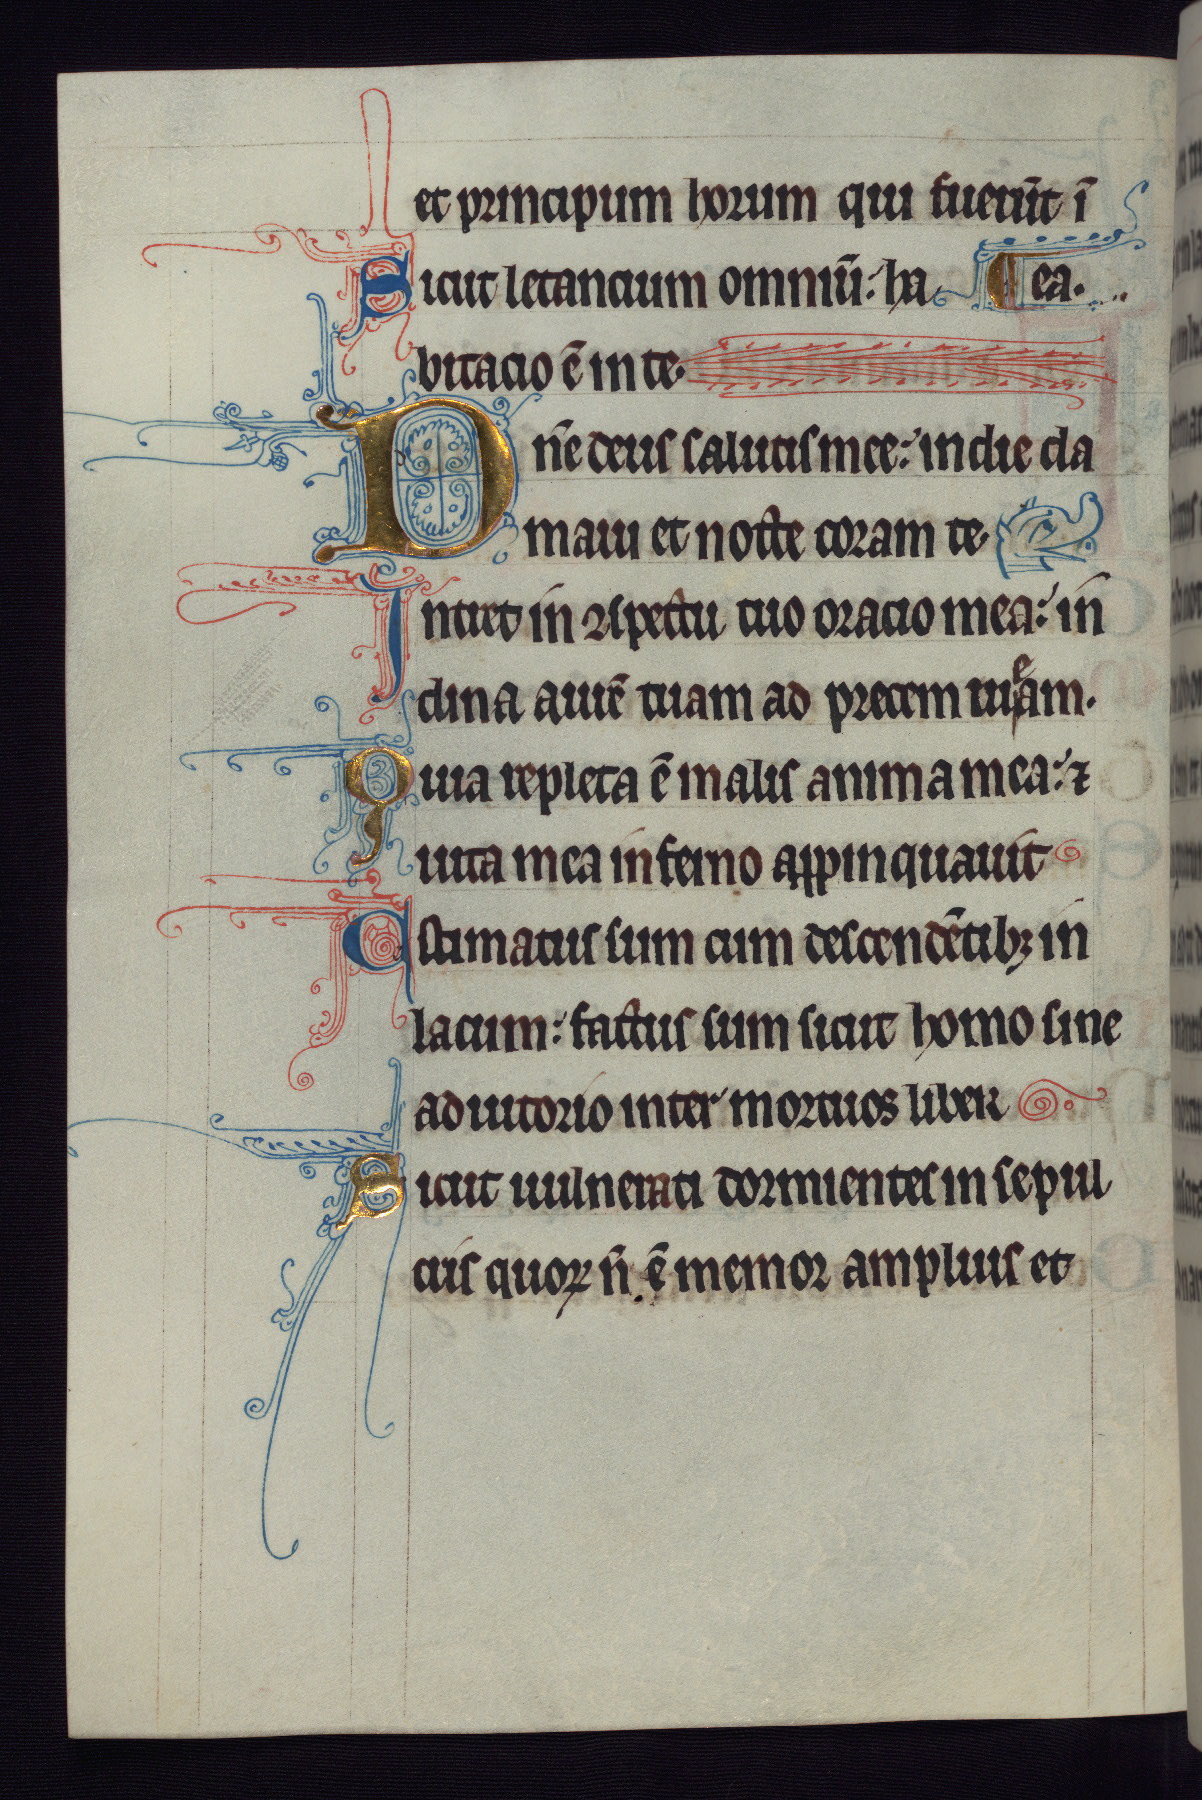 et principum horum qui fuerūt ī
Sicut letancium omniū: ha ea.
bitacio ē in te.
Dn̄e deus salutis mee: in die cla
maui et nocte coram te.
Intret in ɔspectu tuo oracio mea: in
clina aurē tuam ad precem meam.
Quia repleta ē malis anima mea: ⁊
uita mea inferno appinquauit
Estimatus sum cum descendētibꝫ in
lacum: factus sum sicut homo sine
adiutorio inter mortuos liber
Sicut uulnerati dormientes in sepul
cris quoꝝ n̄ ē memor amplius et